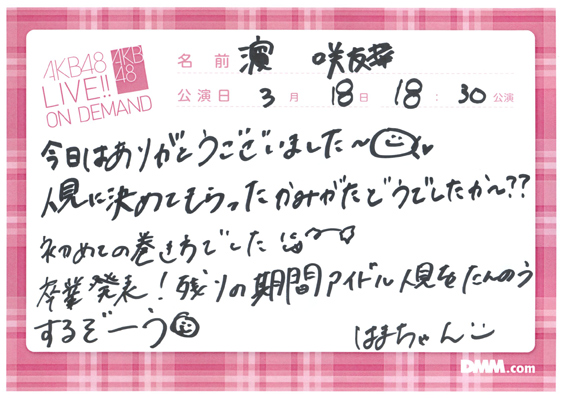 AKB48
LIVE!!
ON DEMAND
AKB
48
名前 濵 咲友菜
公演日 3月 18日 18:30公演
今日はありがとうございました〜
人見に決めてもらったかみがたどうでしたか〜??
初めての巻き方でした
卒業発表!残りの期間アイドル人見をたんのう
するぞーう
はまちゃん
DMM.com